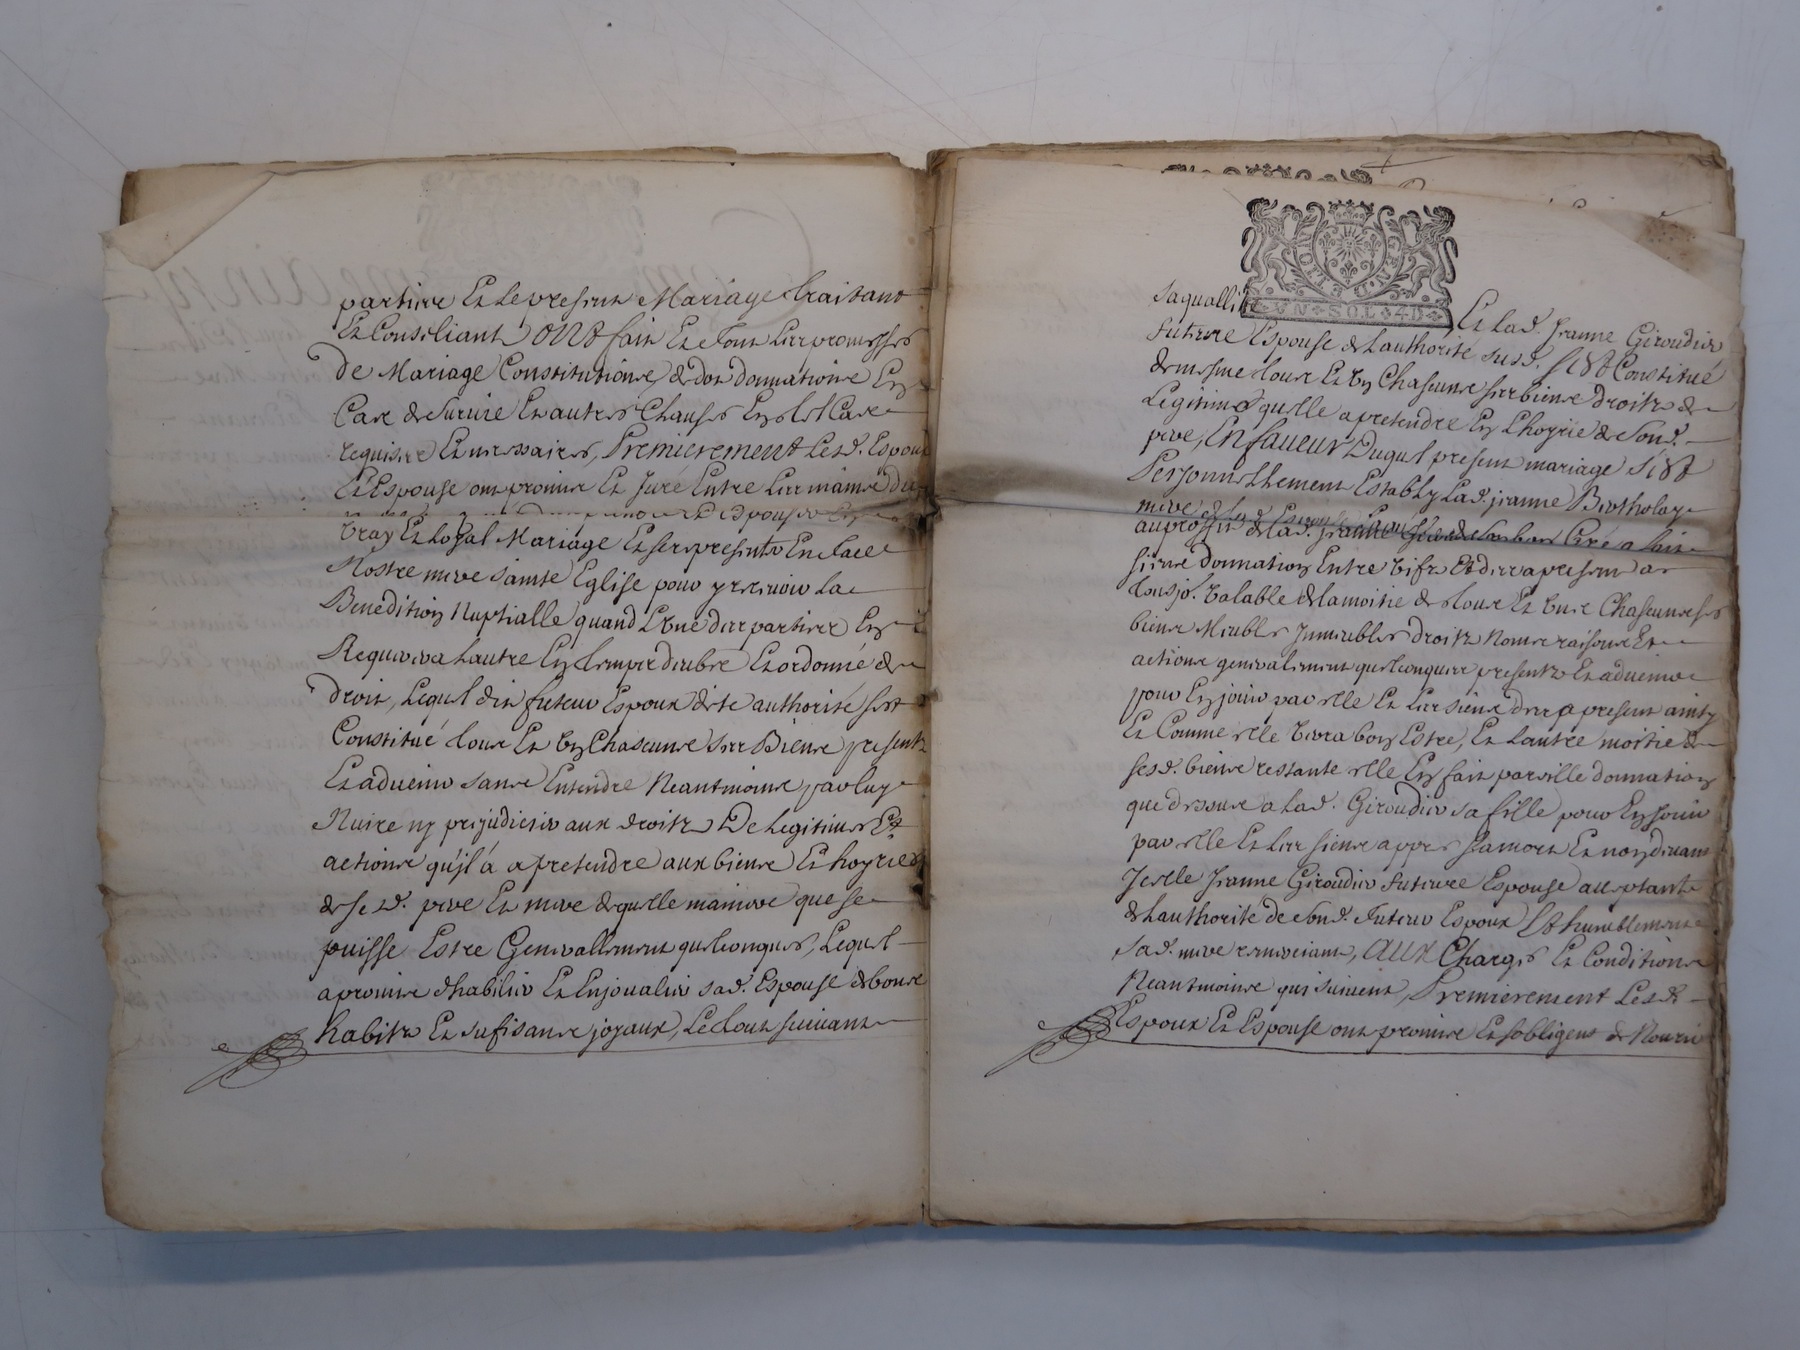 partiee Et le present Mariage traitant
Et Consiliant Ont fait Et font les promesses
de Mariage Constitutions, dot donnations En
Cas de survie Et autres Chauses En tel Cas
requises Et necessaires, Premierement Lesd. Espoux
Et Espouse ont promis Et Jure Entre les mains du
Vray Et Loyal Mariage Et se representer En face
Nostre mere sainte Eglise pour y recevoir la
Benedition Nuptialle quand L'une des parties En
Requerera Lautre En temps deube Et ordonné de
droit, Lequel dit futeur Espoux dite authorité sest
Constitué tous Et Un Chascuns ses Biens presents
Et advenir sans Entendre Neantmoins par luy
Nuire ny prejudicier aux droits De legitimes Et
actions qu'jl á a pretendre aux biens Et hoyries
de sesd. pere Et mere de quelle maniere que se
puisse Estre Generallement quelconques, Lequel
a promis dhabilier Et Enjoualier sad. Espouse de bons
habits Et sufisans joyaux, Le tout suivant
GNATION DE LION
VN SOL 4D
sa quallité Et lad. Jeanne Giroudier
future Espouse de Lauthorité susd. sest Constitué
de mesme tous Et Un Chascuns ses biens droits de
Legitime quelle a pretendre En Lhoyrie de sond.
pere, En faveur Duquel present mariage sest
Personnellement Estably Lad. jeanne Bertholay
mere de lad. Espouse
au proffit de lad. Jeanne de son bon gré a fait
sienne donnation Entre vifs Et des a present a
tousjo. valable de la moitie de tous Et Uns Chascuns ses
biens Meubles Jmeubles droits Noms raisons Et
actions generalement quelconques presents Et advenir
pour En jouir par elle Et les siens des a present ainsy
Et Comme elle verra bon Estre, Et Lautre moitie de
sesd. biens restants elle En fait pareille donnation
que dessus a lad. Giroudier sa fille pour En jouir
par elle Et les siens appres sa mort Et non devant
Jcelle Jeanne Giroudier future Espouse acceptant
de Lauthorité de sond. futeur Espoux Et humblement
sad. mere remerciant, Aux Charges Et Conditions
Neantmoins qui suivent, Premierement Lesd.
Espoux Et Espouse ont promis Et sobligent de Nourir